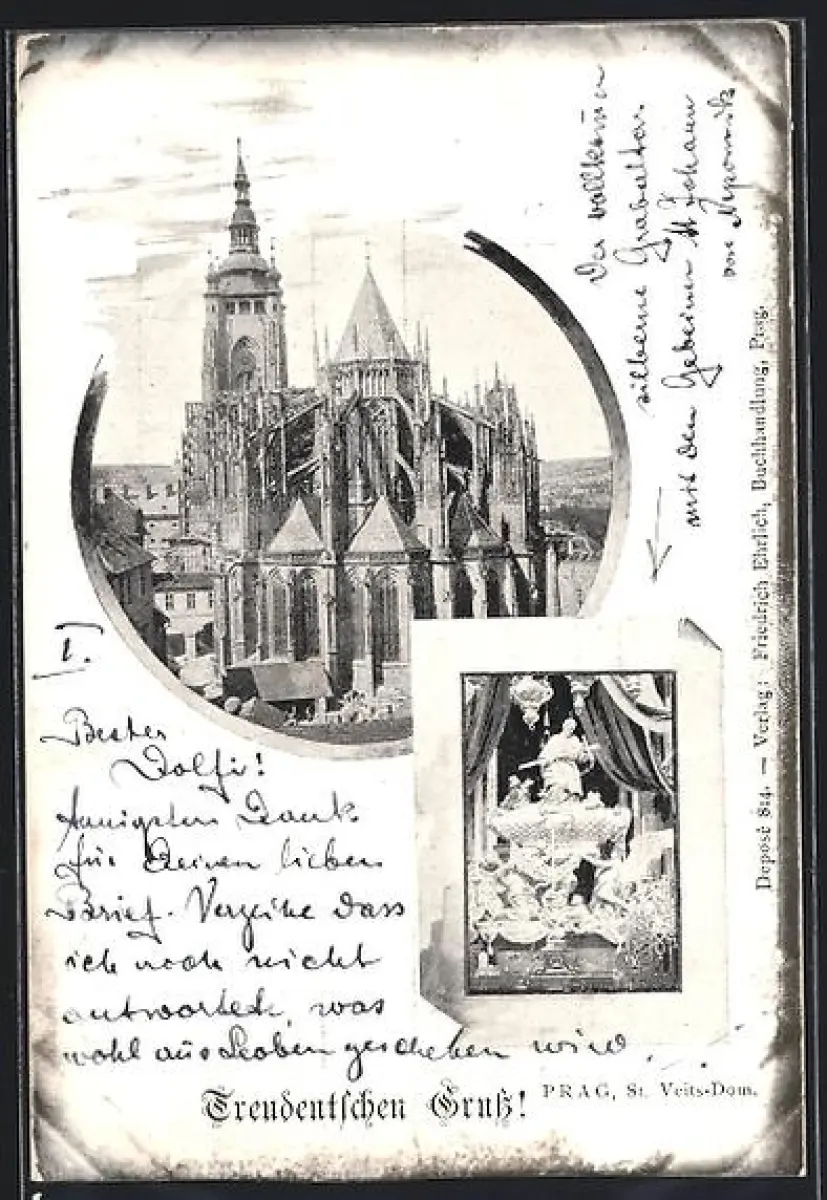 Der vollkommen
silberne Grabaltar
mit den Gebeinen St Johann
von Nepomuk
[I.]
Bester
Dolfi!
Innigsten Dank
für Deinen lieben
Brief. Verzeihe dass
ich noch nicht
antwortete, was
wohl aus Leoben geschehen wird.
Treudeutschen Gruß!
PRAG, St. Veits-Dom.
Deposé 814. — Verlag: Friedrich Ehrlich, Buchhandlung, Prag.